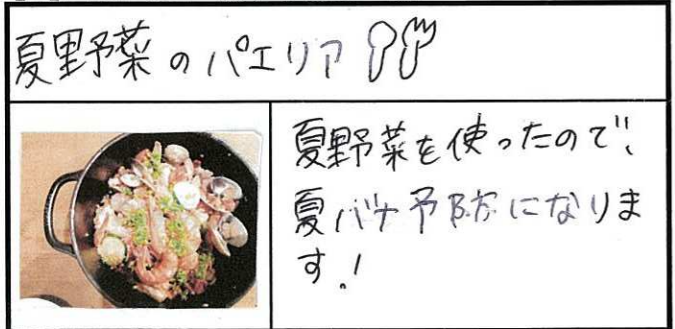 夏野菜のパエリア
夏野菜を使ったので、
夏バテ予防になりま
す!